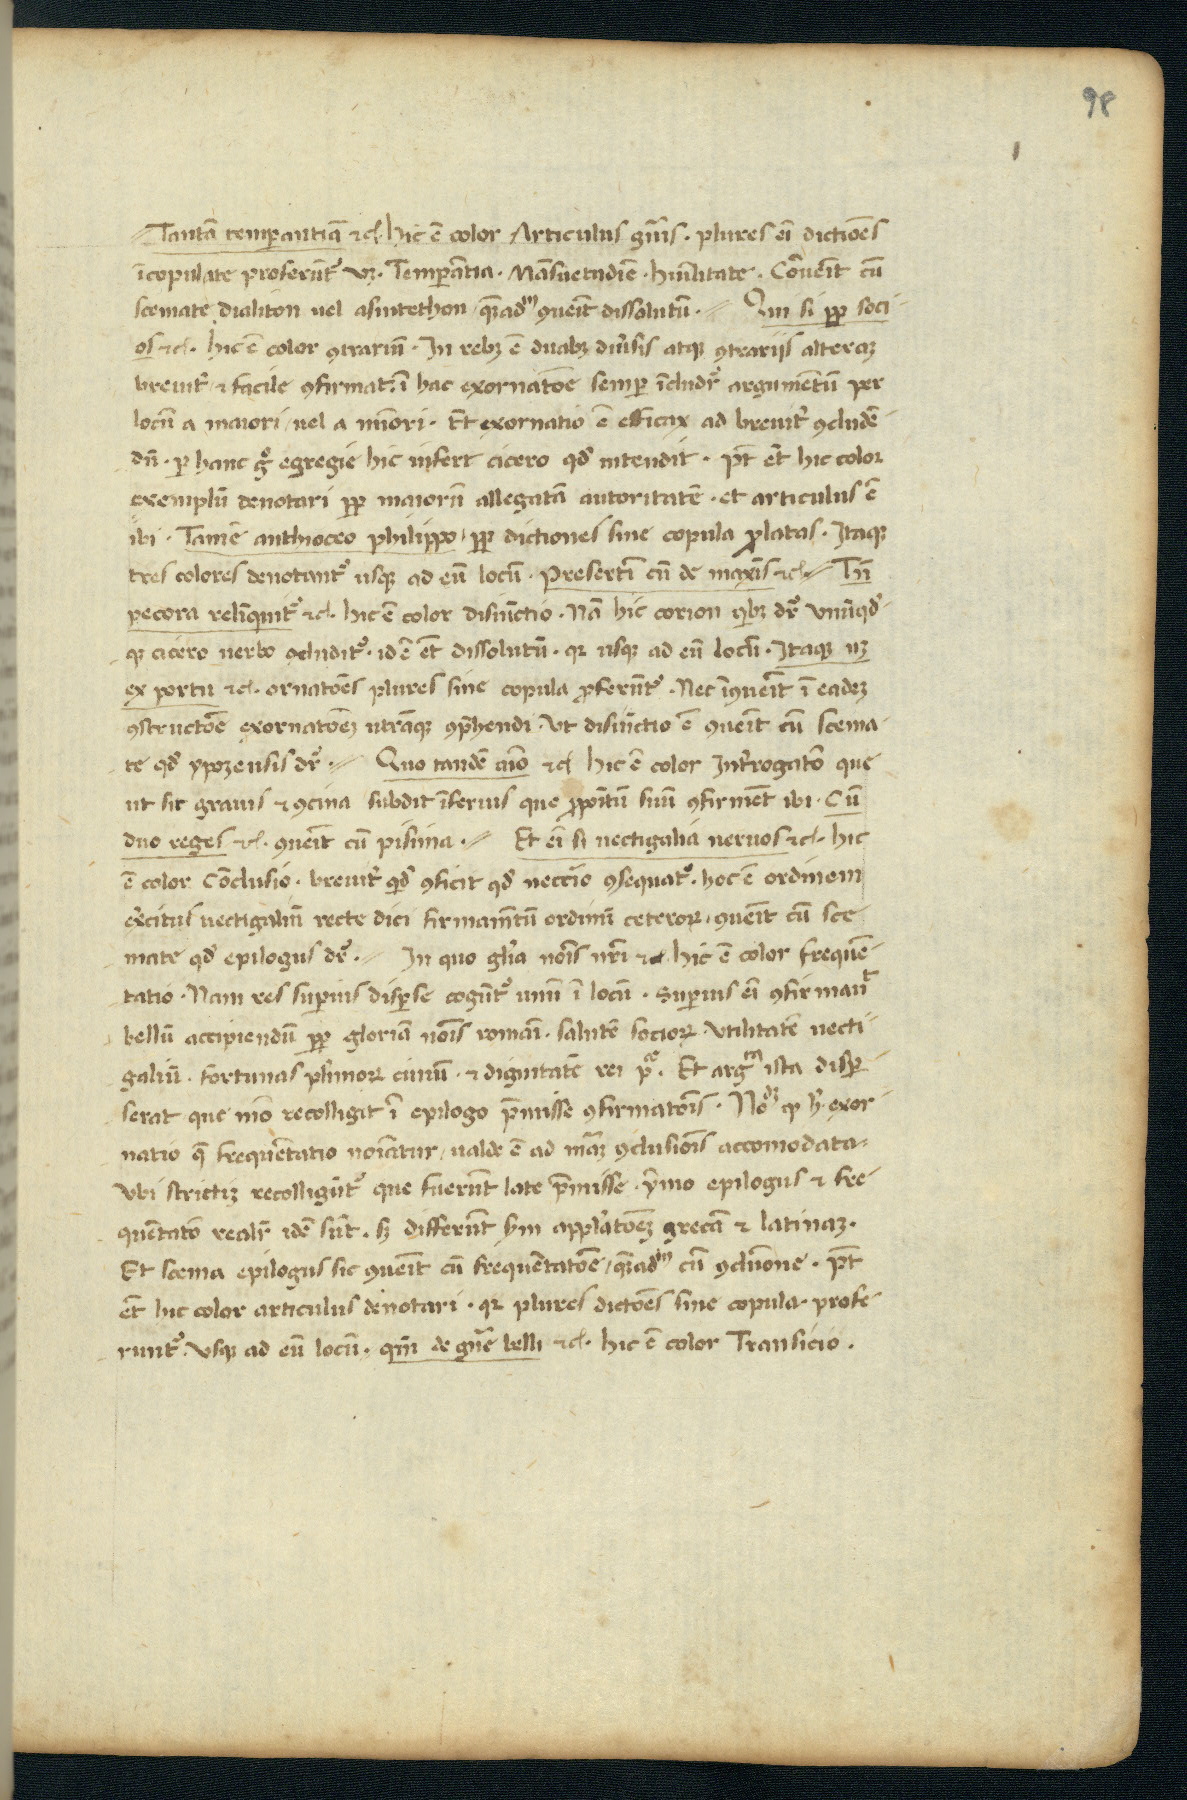 98
Tantã temperantiã ⁊c̃. hic ẽ color Articulus gñis. plures ẽi dictiões
ĩcopulate proferũt᷑ vꝫ. Temperãtia. Mãsuetudiẽ. humĩlitate. Cõueit cũ
scemate dialiton uel asintethon quẽadᵐ ꝯueit dissolutũ. Qui si ꝓp soci
os ⁊c̃. hic ẽ color ꝯtrariũ. In rebꝫ ẽ duabꝫ diuˀsis atqꝫ ꝯtrarijs alterã
breuit᷑ ⁊ facile ꝯfirmat. ĩ hac exornatõe semꝑ ĩcludr᷑ argumẽtũ per
locũ a maiori uel a miõri. Et exornatio ẽ efficax ad breuit᷑ ꝯcludẽ
dũ. ꝑ hanc gͦ egregie hic infert cicero qđ intendit. p̃t ẽt hic color
exemplũ denotari ꝓp maiorũ allegatã autoritatẽ. et articulus ẽ
ibi. Tamẽ anthioceo philippo ꝓp dictiones sine copula ꝓlatas. Itaqꝫ
tres colores denotant᷑ usqꝫ ad eũ locũ. Presertĩ cũ de maxĩs ⁊c̃ Tñ
pecora relĩquit᷑ ⁊c̃. hic ẽ color disiũctio. Nã hic corion qˀbꝫ dr᷑ vnũqđ
qꝫ cicero uerbo ꝯcludit᷑. id ẽ ẽt dissolutũ. qꝛ usqꝫ ad eũ locũ. Itaqꝫ nꝫ
ex portu ⁊c̃. ornatões plures sine copula ꝓferũt᷑. Nec ĩꝯueit ĩ eadeꝫ
ꝯstructõe exornatõeꝫ utrãqꝫ ꝯp̃hendi. Ut disiũctio ẽ ꝯueit cũ scema
te qđ ypozeusis dr᷑. Quo tandẽ aĩo ⁊c̃ hic ẽ color Int᷑rogatõ que
ut sit grauis ⁊ ꝯcina subdit ĩferius que ꝓpõitũ suũ ꝯfirmẽt ibi. Cũ
duo reges ⁊c̃. ꝯueit cũ pisma. Et ẽi si uectigalia neruos ⁊c̃. hic
ẽ color Cõclusio. breuit᷑ qđ ꝯficit qđ neccãio ꝯsequat᷑. hoc ẽ ordinem
exˀcitus uectigaliũ recte dici firmamẽtũ ordinũ ceteroꝝ, ꝯueit cũ sce
mate qđ epilogus dr᷑. In quo glˀia nõis nr̃i ⁊c̃ hic ẽ color frequẽ
tatio. Nam res superius disperse cogũt᷑ unũ ĩ locũ. Superius ẽi ꝯfirmauit
bellũ accipiendũ ꝓp gloriã nõis romãi. salutẽ socioꝝ vtilitatẽ uecti
galiũ. fortunas plˀimoꝝ ciuiũ. ⁊ dignitatẽ rei pᵃ. Et argᵐ ista disper
serat que mõ recolligit ĩ epilogo p̃misse ꝯfirmatõis. No᷑ qꝫ h̃ exor
natio q̃ frequẽtatio noĩatur, ualde ẽ ad mãꝫ ꝯclusiõis accomodata
vbi strictiꝫ recolligũt᷑ que fuerũt late p̃misse. ymo epilogus ⁊ fre
quẽtatõ realr᷑ idẽ sũt. sꝫ differũt ẜm applˀatõeꝫ grecã ⁊ latinaꝫ.
Et scema epilogus sic ꝯueit cũ frequẽtatõe, quẽadᵐ cũ ꝯclũione. p̃t
ẽt hic color articulus denotari. qꝛ plures dictões sine copula profe
runt᷑. vsqꝫ ad eũ locũ. qm̃ de gñe belli ⁊c̃. hic ẽ color Transicio.